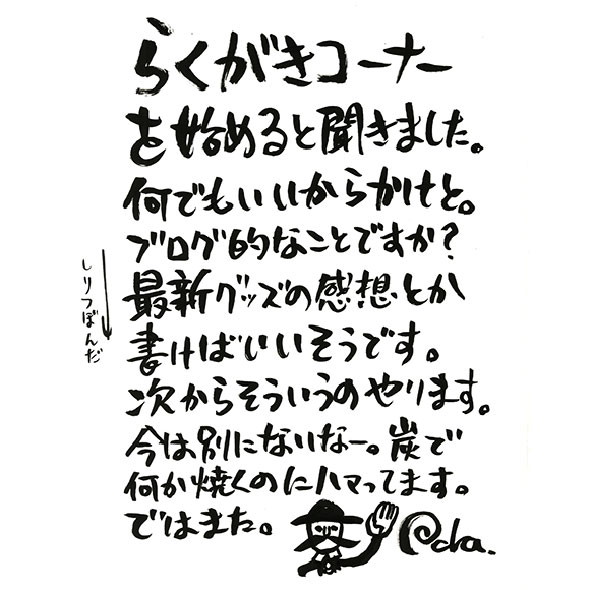 らくがきコーナー
を始めると聞きました。
何でもいいからかけと。
ブログ的なことですか?
最新グッズの感想とか
書けばいいそうです。
次からそういうのやります。
今は別にないなー。炭で
何か焼くのにハマってます。
ではまた。
しりつぼんだ